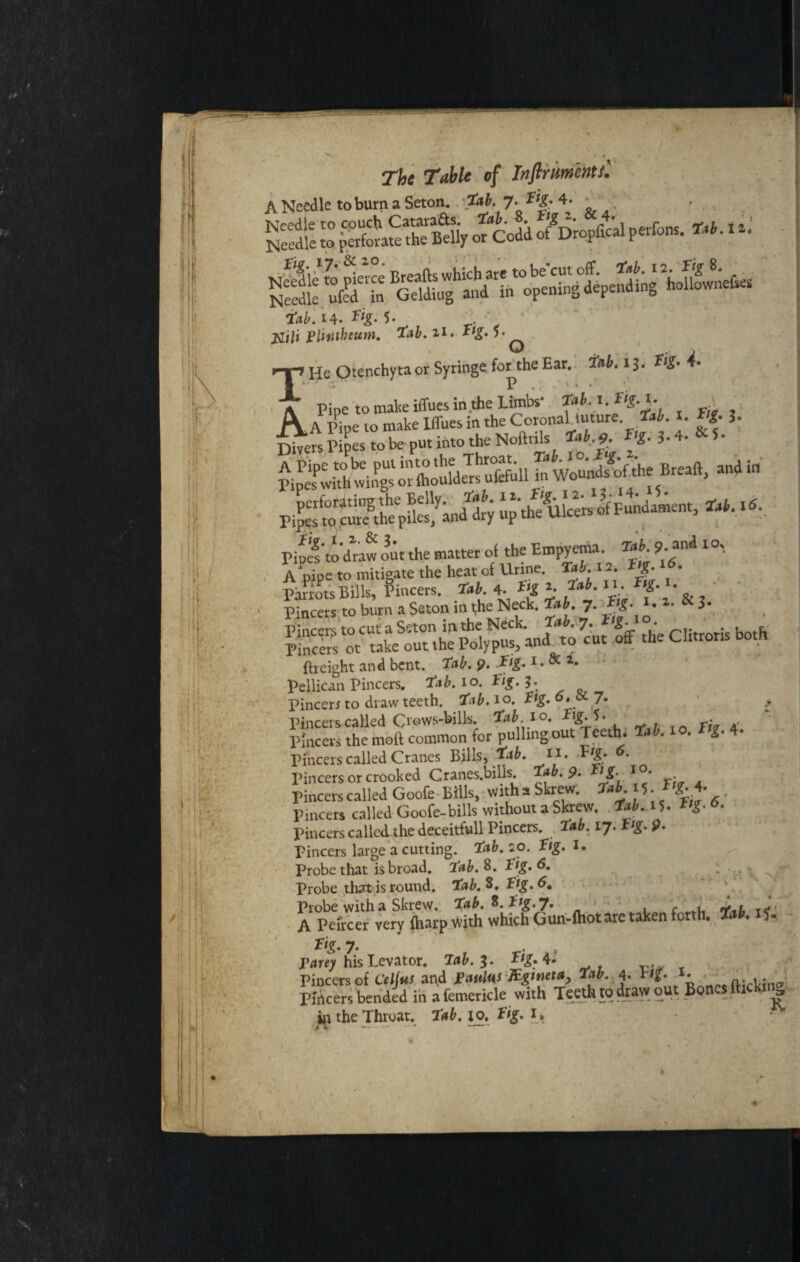 The Table of Inſtruments.
A Needle to burn a Seton. Tab. 7. Fig. 4.
Needle to couch Cataracts. Tab. 8. Fig 2. & 4.
Needle to perforate the Belly or Codd of Dropſical perſons. Tab. 12.
Fig. 17. & 20.
Needle to pierce Breaſts which are to be cut off. Tab. 12. Fig 8.
Needle uſed in Geldiug and in opening depending hollowneſses
Tab. 14. Fig. 5.
Nili Plintheum. Tab. 21. Fig. 5.
O
THe Otenchyta or Syringe for the Ear. Tab. 13. Fig. 4.
P
A Pipe to make iſſues in the Limbs· Tab. 1. Fig. 1.
A Pipe to make Iſſues in the Coronal ſuture. Tab. 1. Fig. 3.
Divers Pipes to be put into the Noſtrils Tab. 9. Fig. 3. 4. & 5.
A Pipe to be put into the Throat. Tab. 10. Fig. 2.
Pipes with wings or ſhoulders uſefull in Wounds of the Breaſt, and in
perforating the Belly. Tab. 12. Fig. 12. 13. 14. 15.
Pipes to cure the piles, and dry up the Ulcers of Fundament, Tab. 16.
Fig. 1. 2. & 3.
Pipes to draw out the matter of the Empyema. Tab. 9. and 10.
A pipe to mitigate the heat of Urine. Tab. 12. Fig. 16.
Parrots Bills, Pincers. Tab. 4. Fig 2. Tab. 11. Fig. 1.
Pincers to burn a Seton in the Neck. Tab. 7. Fig. 1. 2. & 3.
Pincers to cut a Seton in the Neck. Tab. 7. Fig. 10.
Pincers ot take out the Polypus, and to cut off the Clitroris both
ſtreight and bent. Tab. 9. Fig. 1. & 2.
Pellican Pincers. Tab. 10. Fig. 3.
Pincers to draw teeth. Tab. 10. Fig. 6. & 7.
Pincers called Crows-bills. Tab. 10. Fig. 5.
Pincers the moſt common for pulling out Teeth. Tab. 10. Fig. 4.
Pincers called Cranes Bills, Tab. 11. Fig. 6.
Pincers or crooked Cranes.bills. Tab. 9. Fig. 10.
Pincers called Gooſe-Bills, with a Skrew. Tab. 15. Fig. 4.
Pincers called Gooſe-bills without a Skrew. Tab. 15. Fig. 6.
Pincers called the deceitfull Pincers. Tab. 17. Fig. 9.
Pincers large a cutting. Tab. 20. Fig. 1.
Probe that is broad. Tab. 8. Fig. 6.
Probe that is round. Tab. 8. Fig. 6.
Probe with a Skrew. Tab. 8. Fig. 7.
A Peircer very ſharp with which Gun-ſhot are taken forth. Tab. 15.
Fig. 7.
Parey his Levator. Tab. 3. Fig. 4.
Pincers of Celſus and Paulus Ægineta, Tab. 4. Fig. 1.
Pincers bended in a ſemericle with Teeth to draw out Bones ſticking
in the Throat. Tab. 10. Fig. 1.
K